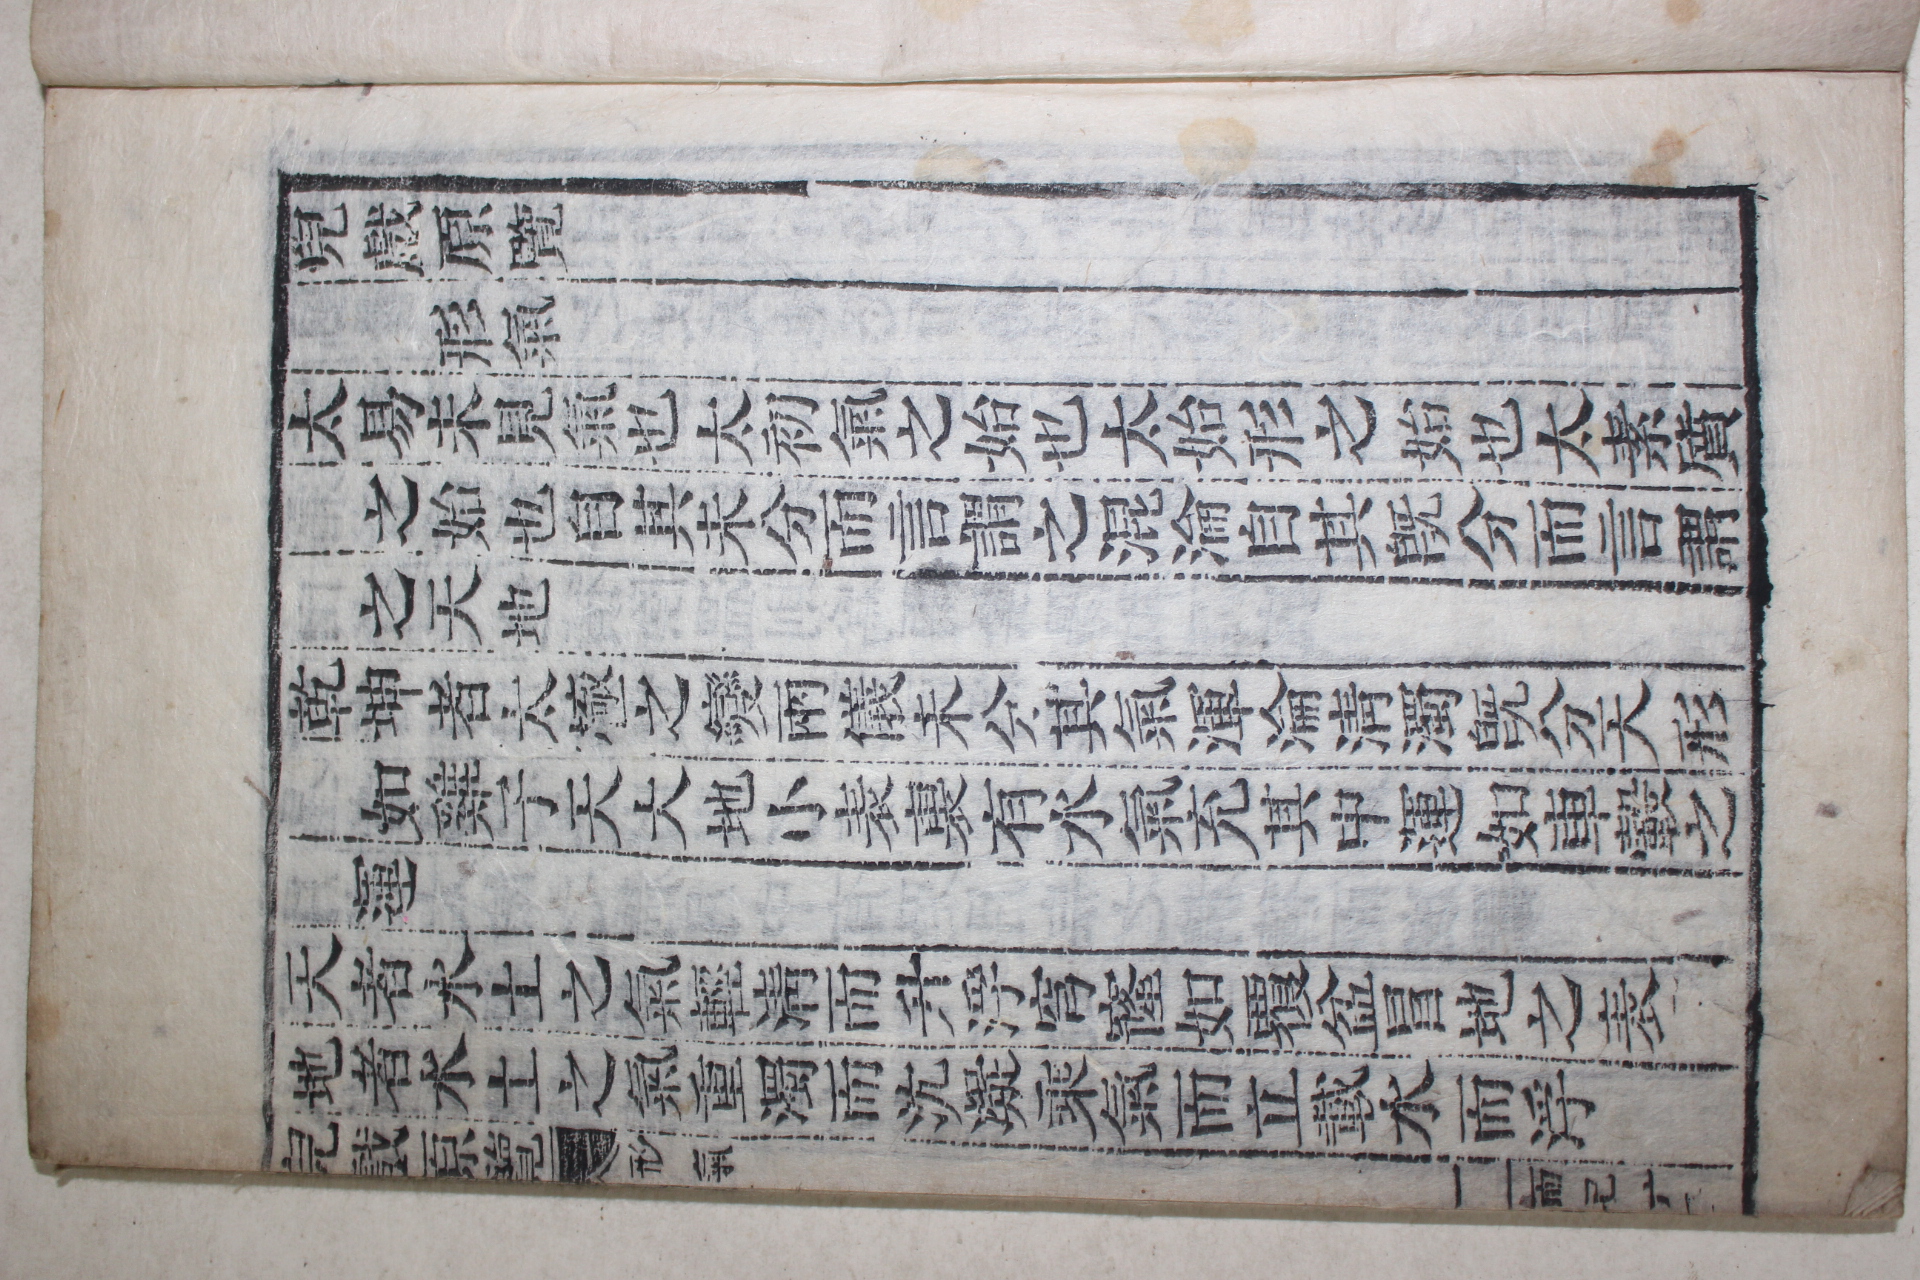 兒戲原覽
形氣
太易未見氣也太初氣之始也太始形之始也太素質
之始也自其未分而言謂之混淪自其旣分而言謂
之天地
乾坤者太極之變兩儀未分其氣渾淪清濁旣分天形
如雞子天大地小表裏有水氣充其中運如車轂之
運
天者水土之氣輕清而升浮穹窿如覆盆冒地之表
地者水土之氣重濁而沈凝乘氣而立載水而浮
兒戲原覽 形氣 一